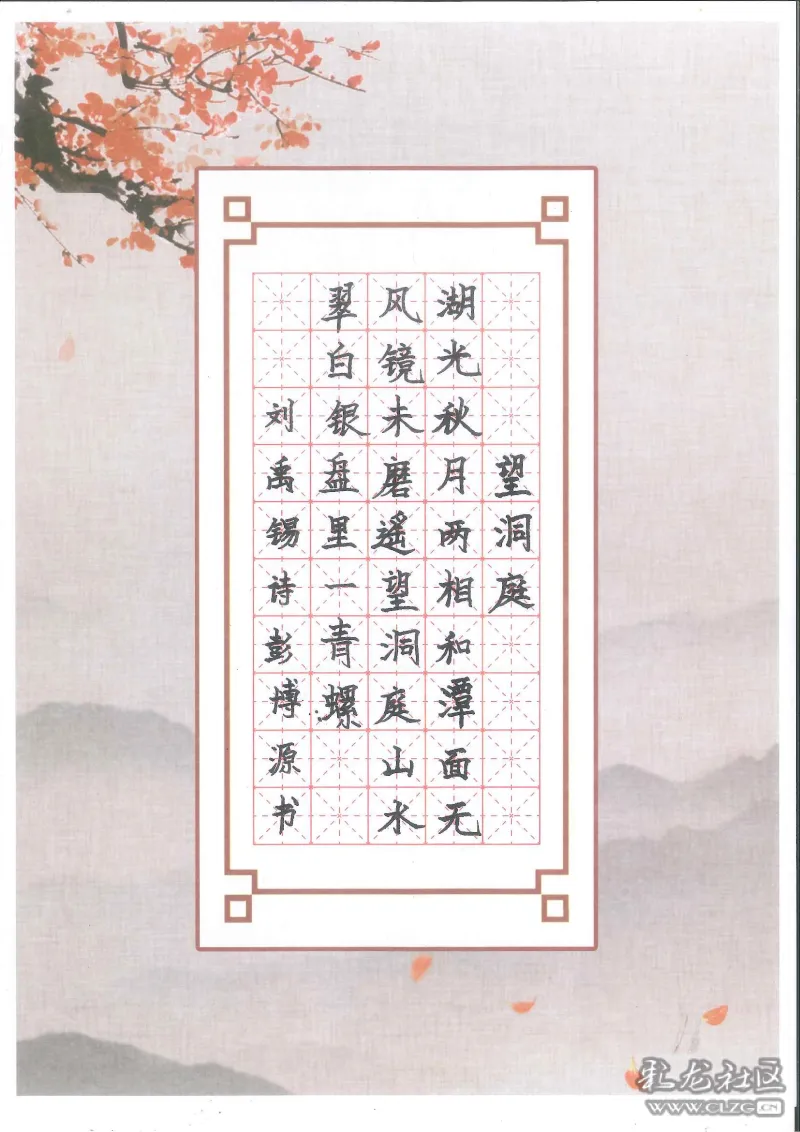 望洞庭
湖光秋月两相和潭面无
风镜未磨遥望洞庭山水
翠白银盘里一青螺
刘禹锡诗彭博源书
私龙社区
WWW.CLZG.CN